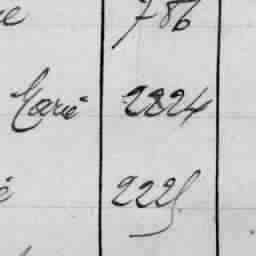 e 786
Marie 2824
é 2225